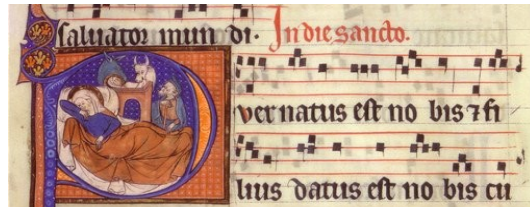 salvator mun di. In die sancto.
ver natus est no bis ⁊ fi
lius datus est no bis cu